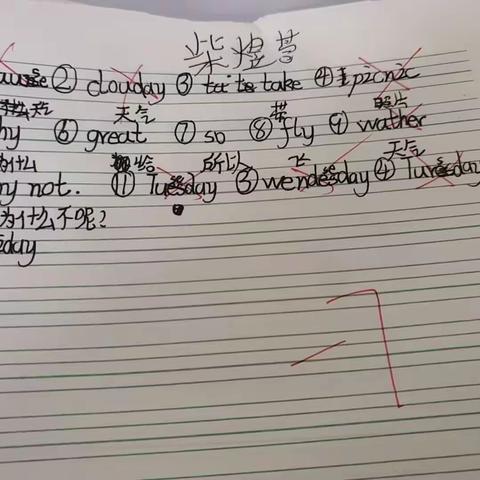 柴煜营
② clouday ③ take ④ picnic
天气 带 照片
hy ⑥ great ⑦ so ⑧ fly ⑨ wather
什么 所以 飞 天气
ny not. ⑪ Tuesday ③ wendesday ④ Turesday
为什么不呢?
day